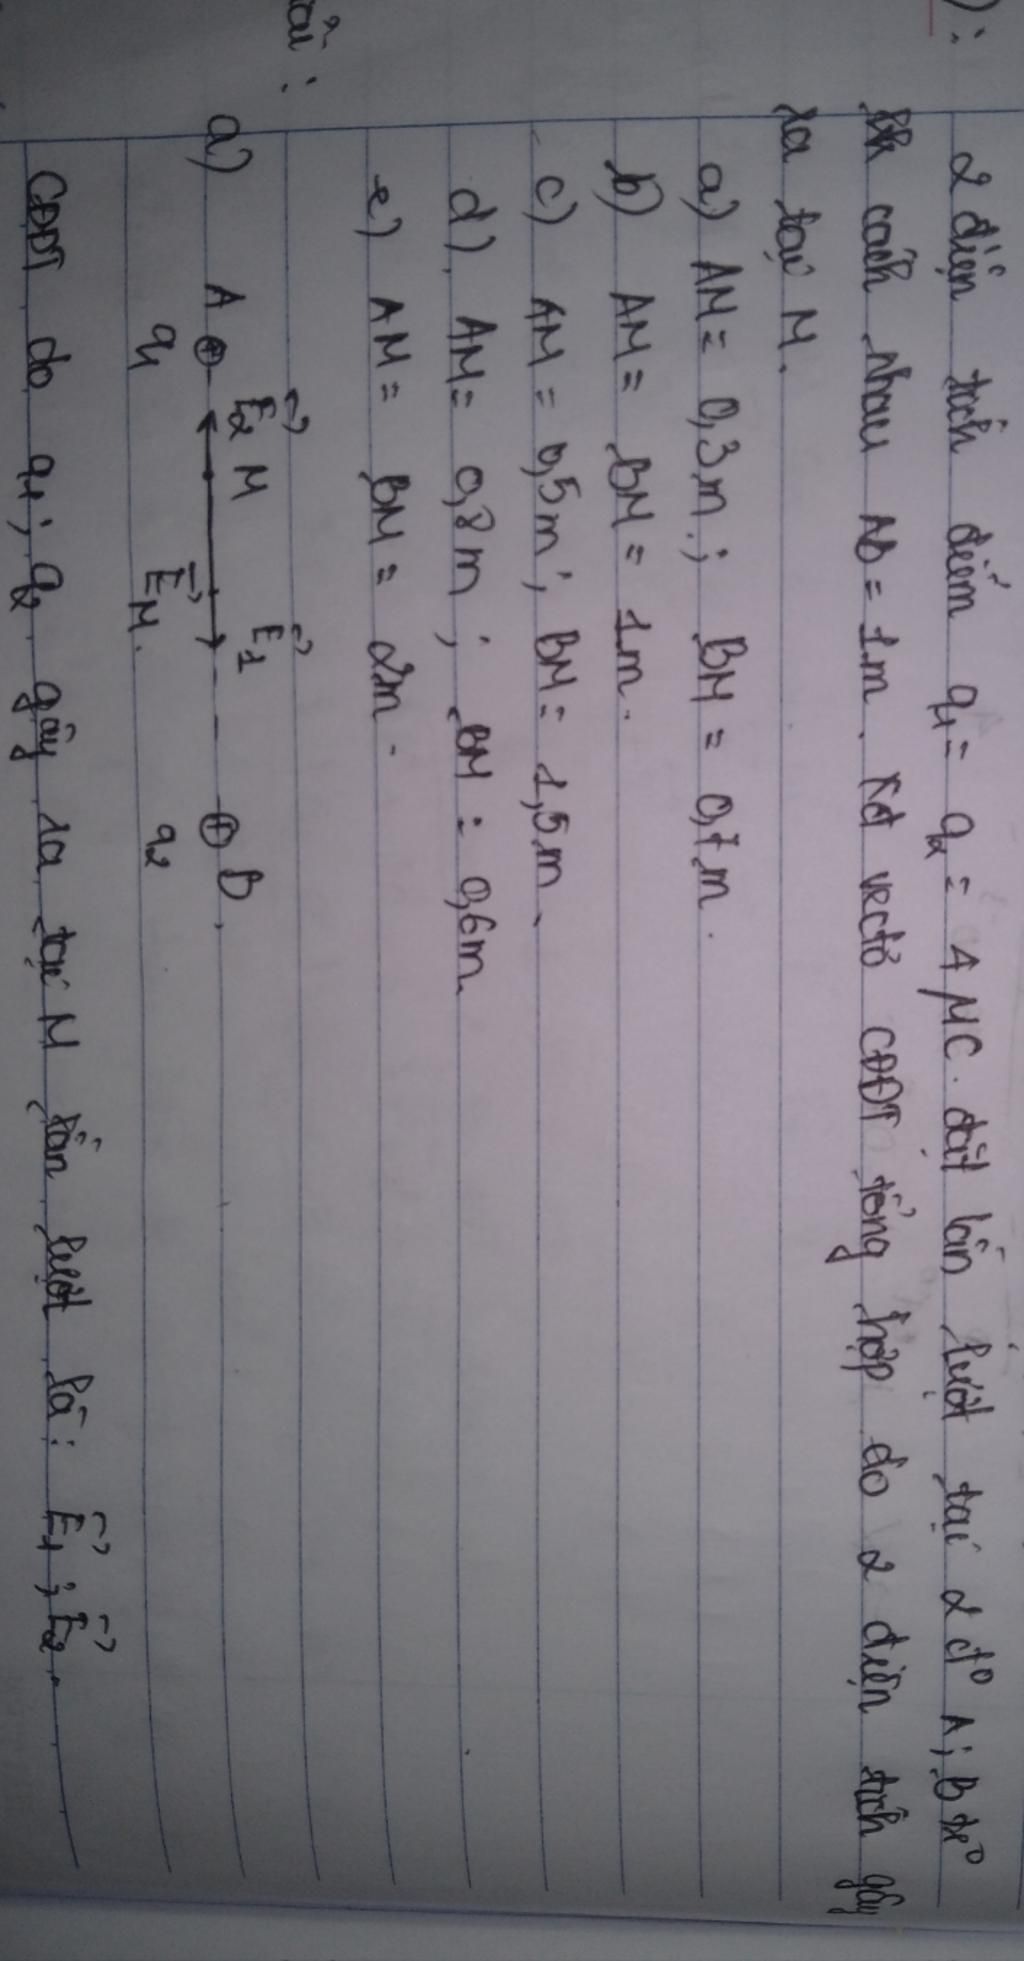 2 điện tích điểm q1 = q2 = 4 μC. đặt lần lượt tại 2 đ° A; B
cách nhau AB = 1m. Xđ vectơ CĐĐT tổng hợp do 2 điện tích gây
ra tại M.
a) AM = 0,3m; BM = 0,7m.
b) AM = BM = 1m.
c) AM = 0,5m; BM = 1,5m.
d) AM = 0,8m; BM = 0,6m
e) AM = BM = 2m.
E2 E1
a) A M B
q1 EM. q2
CĐĐT do q1; q2 gây ra tại M lần lượt là: E1; E2.